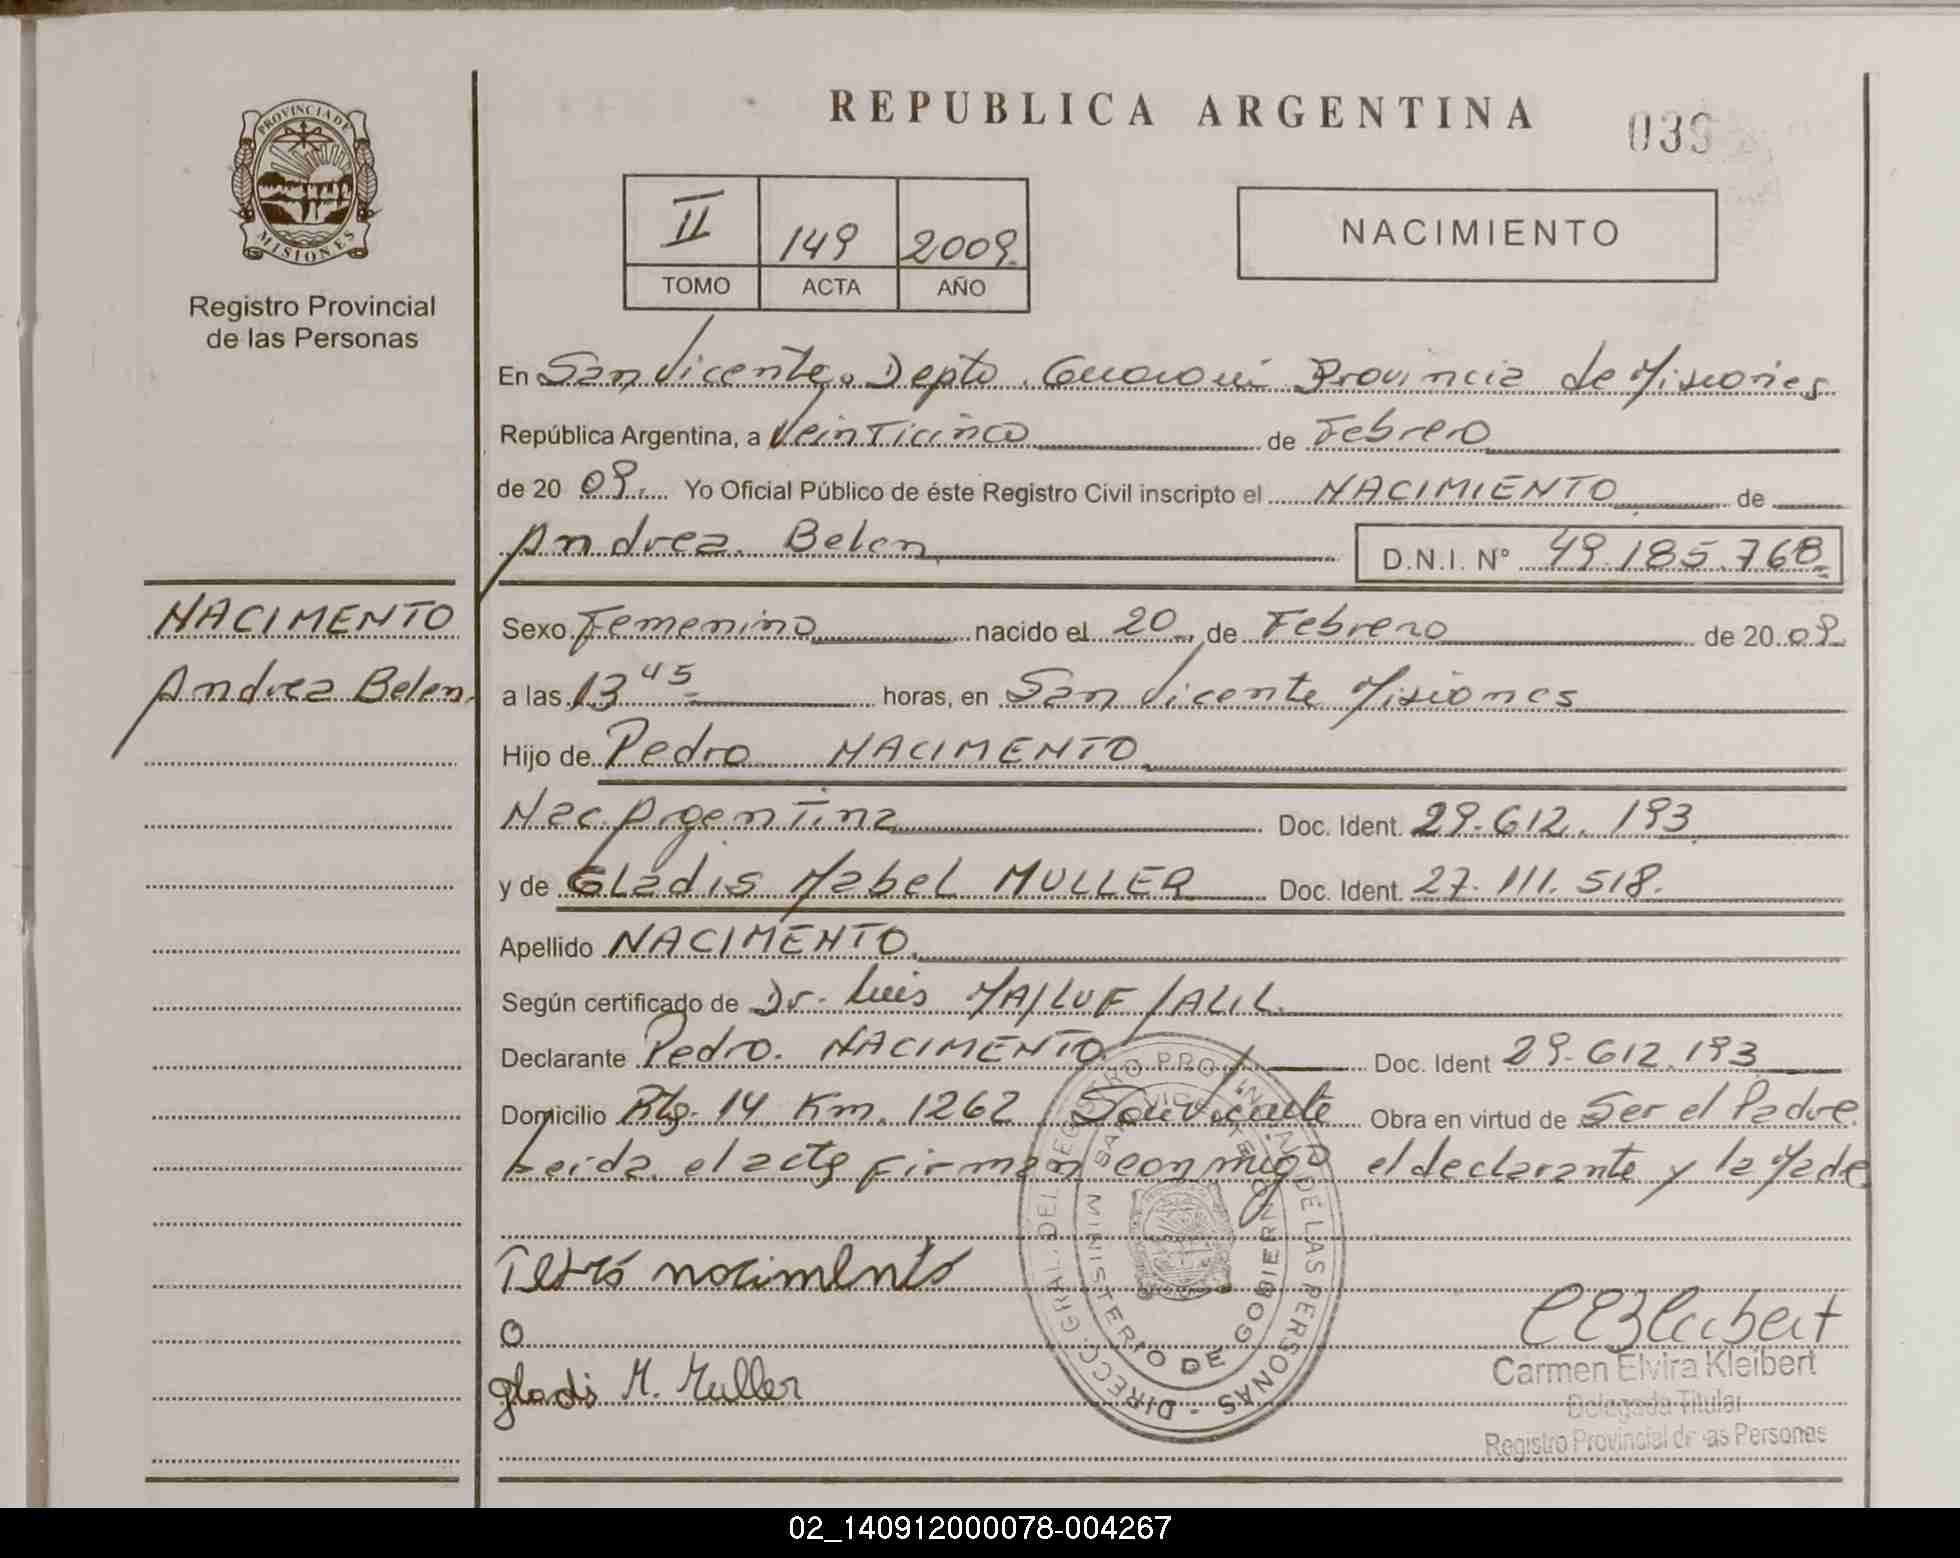 REPUBLICA ARGENTINA
039
PROVINCIA DE
MISIONES
Registro Provincial
de las Personas
II 149 2009
TOMO ACTA AÑO
NACIMIENTO
En San Vicente. Depto. Guaraní Provincia de Misiones
República Argentina, a Veinticinco de Febrero
de 20 09. Yo Oficial Público de éste Registro Civil inscripto el NACIMIENTO de
Andrea Belen D.N.I. N° 49.185.768
NACIMENTO
Andrea Belen
Sexo Femenino nacido el 20 de Febrero de 20 09
a las 13 45 horas, en San Vicente Misiones
Hijo de Pedro NACIMENTO
Nac. Argentina Doc. Ident. 29.612.193
y de Gladis Mabel MULLER Doc. Ident. 27.111.518.
Apellido NACIMENTO
Según certificado de Dr. Luis
Declarante Pedro. NACIMENTO Doc. Ident 29.612.193
Domicilio Rta. 14 Km. 1262 San Vicente Obra en virtud de Ser el Padre.
Leida el acta firman conmigo el declarante y la Made
nacimento
O
gladi M. Muller
DIRECC. GRAL. DEL REGISTRO PROVINCIAL DE LAS PERSONAS -
SAN VICENTE
MINISTERIO DE GOBIERNO
Carmen Elvira Kleibert
Delegada Titular
Registro Provincial de las Personas
02_140912000078-004267